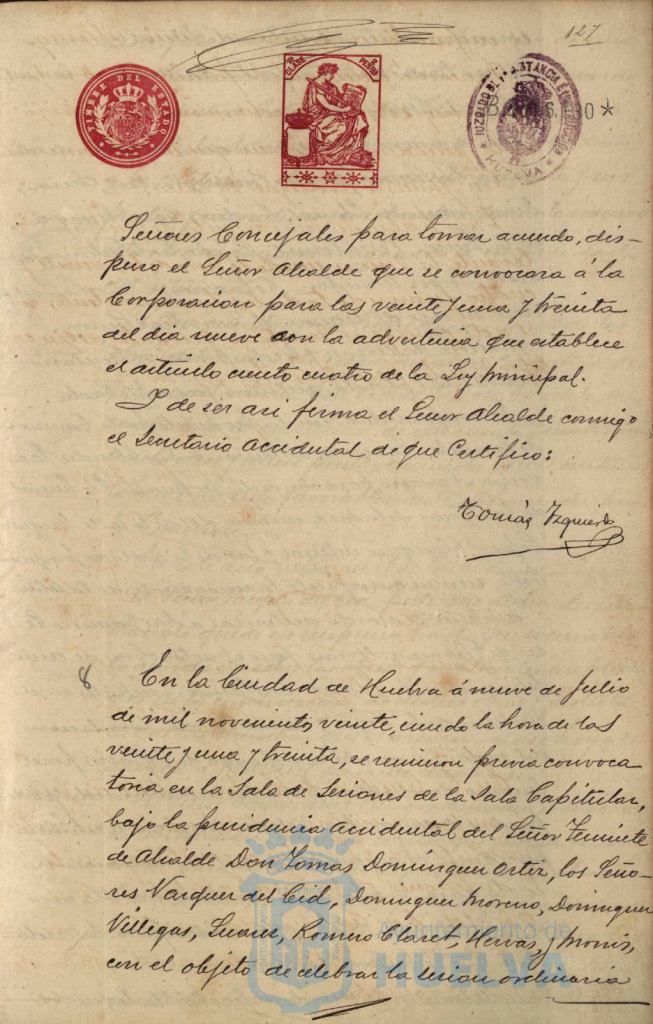 127
TIMBRE DEL ESTADO
CLASE PESETAS
JUZGADO DE 1ª INSTANCIA E INSTRUCCION
HUELVA
Señores Concejales para tomar acuerdo, dis-
puso el Señor Alcalde que se convocara á la
Corporacion para las veinte y una y treinta
del dia nueve con la advertencia que establece
el articulo ciento cuatro de la Ley Municipal.
Y de ser asi firma el Señor Alcalde conmigo
el Secretario Accidental de que Certifico:
Tomás Izquierdo
8
En la Ciudad de Huelva á nueve de Julio
de mil novecientos veinte, siendo la hora de las
veinte y una y treinta, se reunieron previa convoca
toria en la Sala de Sesiones de la Sala Capitular,
bajo la presidencia accidental del Señor Teniente
de Alcalde Don Tomas Dominguez Ortiz, los Seño-
res Vazquez del Cid, Dominguez Moreno, Dominguez
Villegas, Suarez, Romero Claret, Hervas, y Monis,
con el objeto de celebrar la sesion ordinaria
Ayuntamiento de
HUELVA